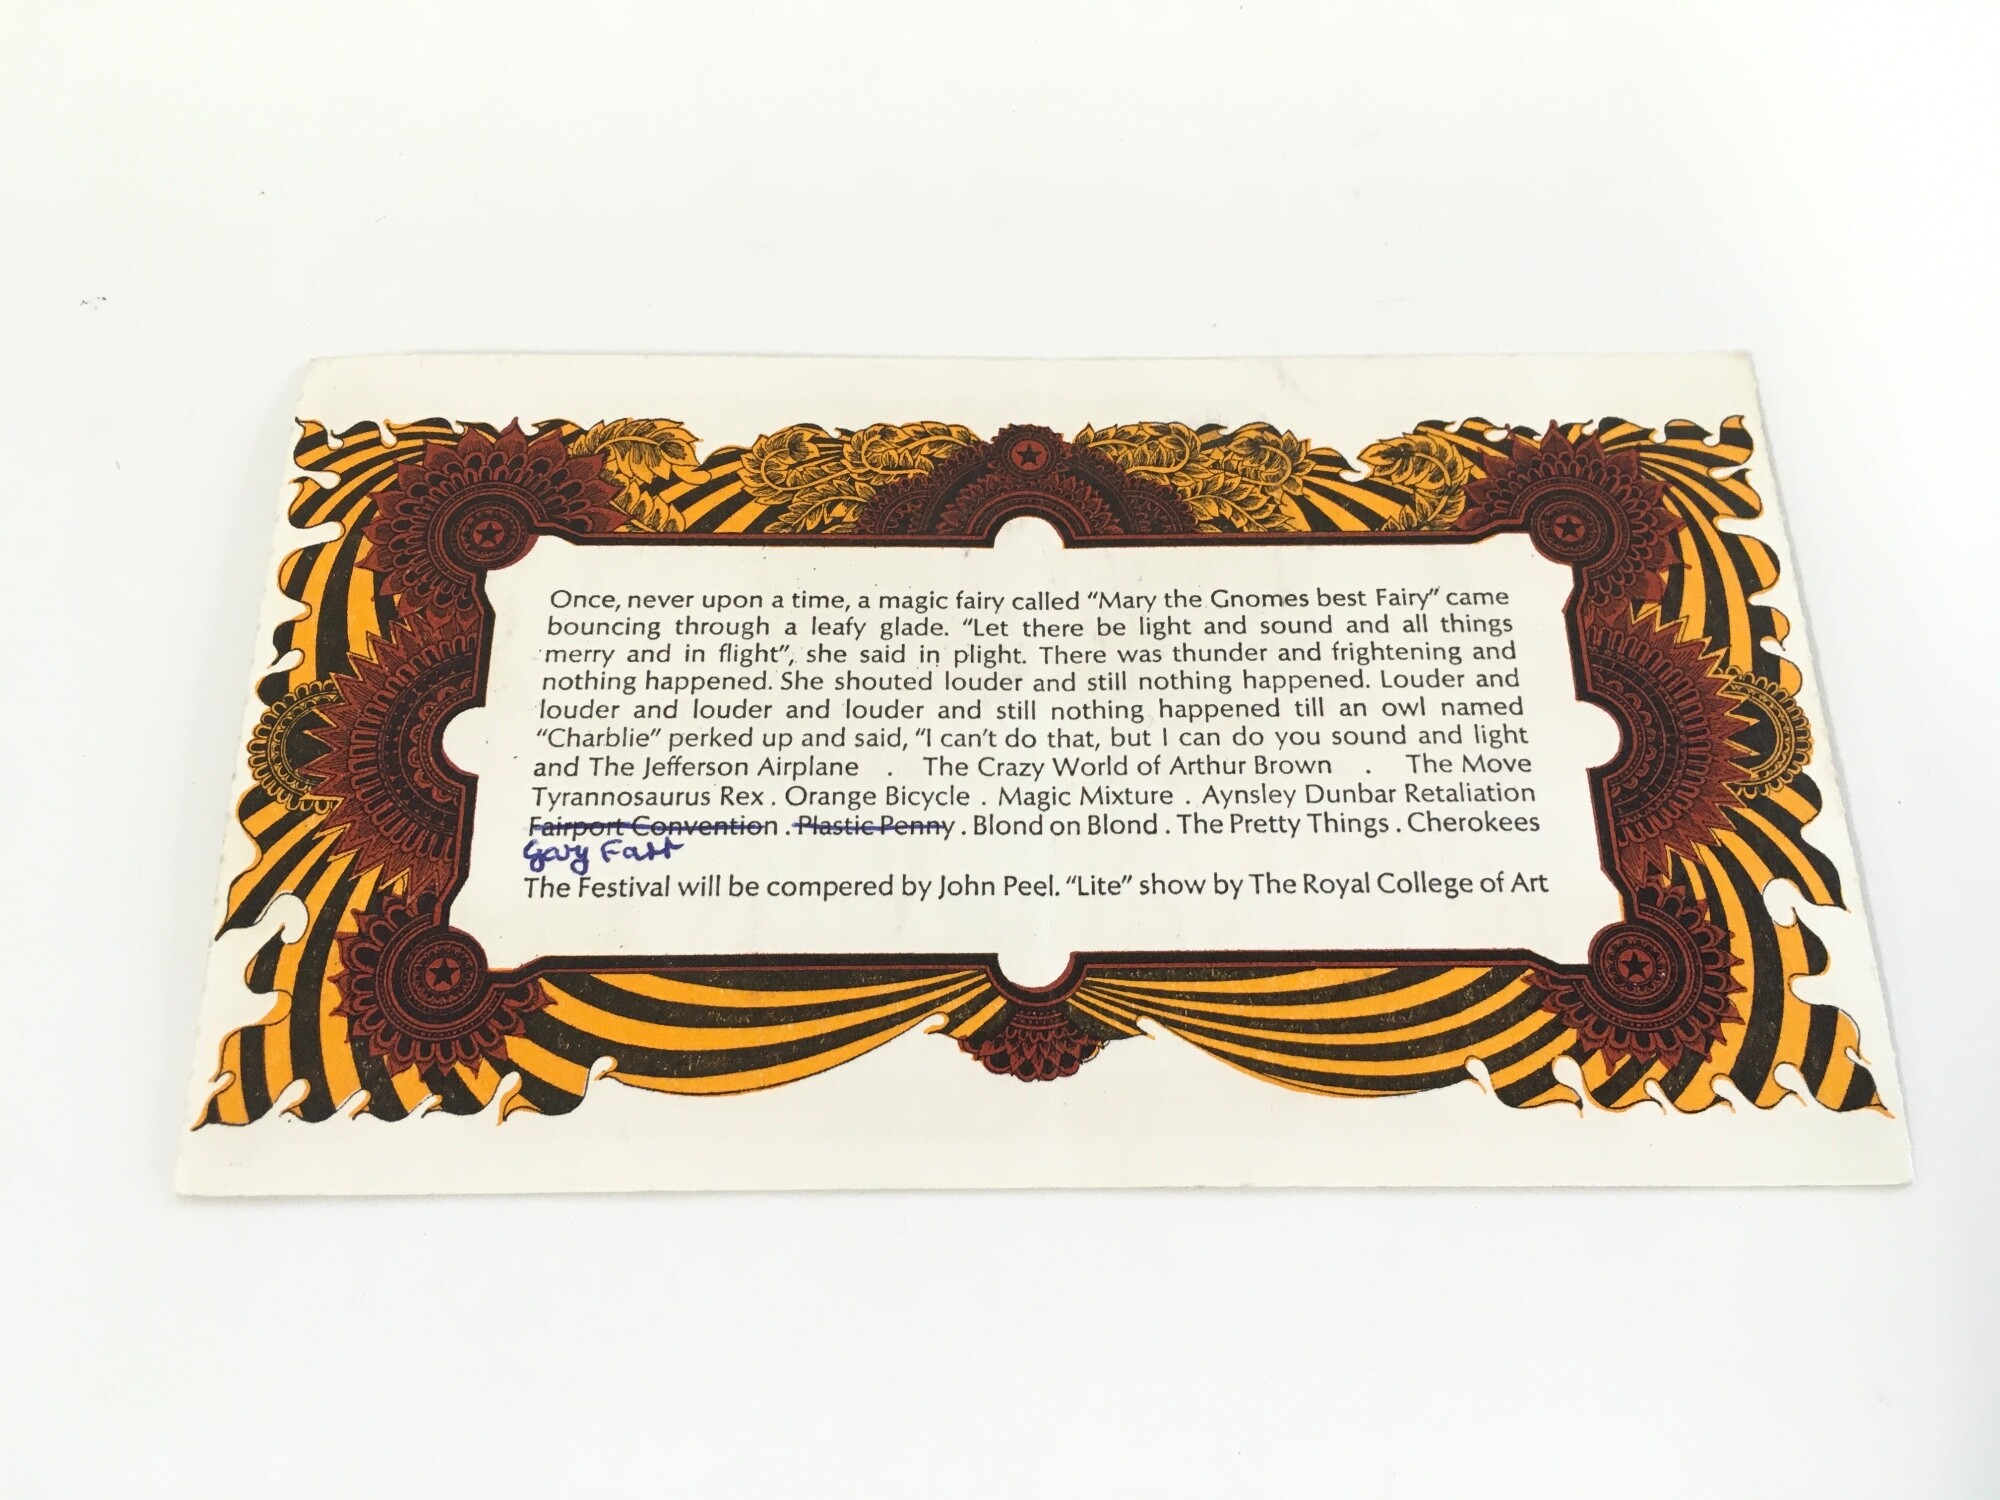 Once, never upon a time, a magic fairy called “Mary the Gnomes best Fairy” came
bouncing through a leafy glade. “Let there be light and sound and all things
merry and in flight”, she said in plight. There was thunder and frightening and
nothing happened. She shouted louder and still nothing happened. Louder and
louder and louder and louder and still nothing happened till an owl named
“Charblie” perked up and said, “I can't do that, but I can do you sound and light
and The Jefferson Airplane . The Crazy World of Arthur Brown . The Move
Tyrannosaurus Rex . Orange Bicycle . Magic Mixture . Aynsley Dunbar Retaliation
Fairport Convention . Plastic Penny . Blond on Blond . The Pretty Things . Cherokees
Gary Farr
The Festival will be compered by John Peel. “Lite” show by The Royal College of Art